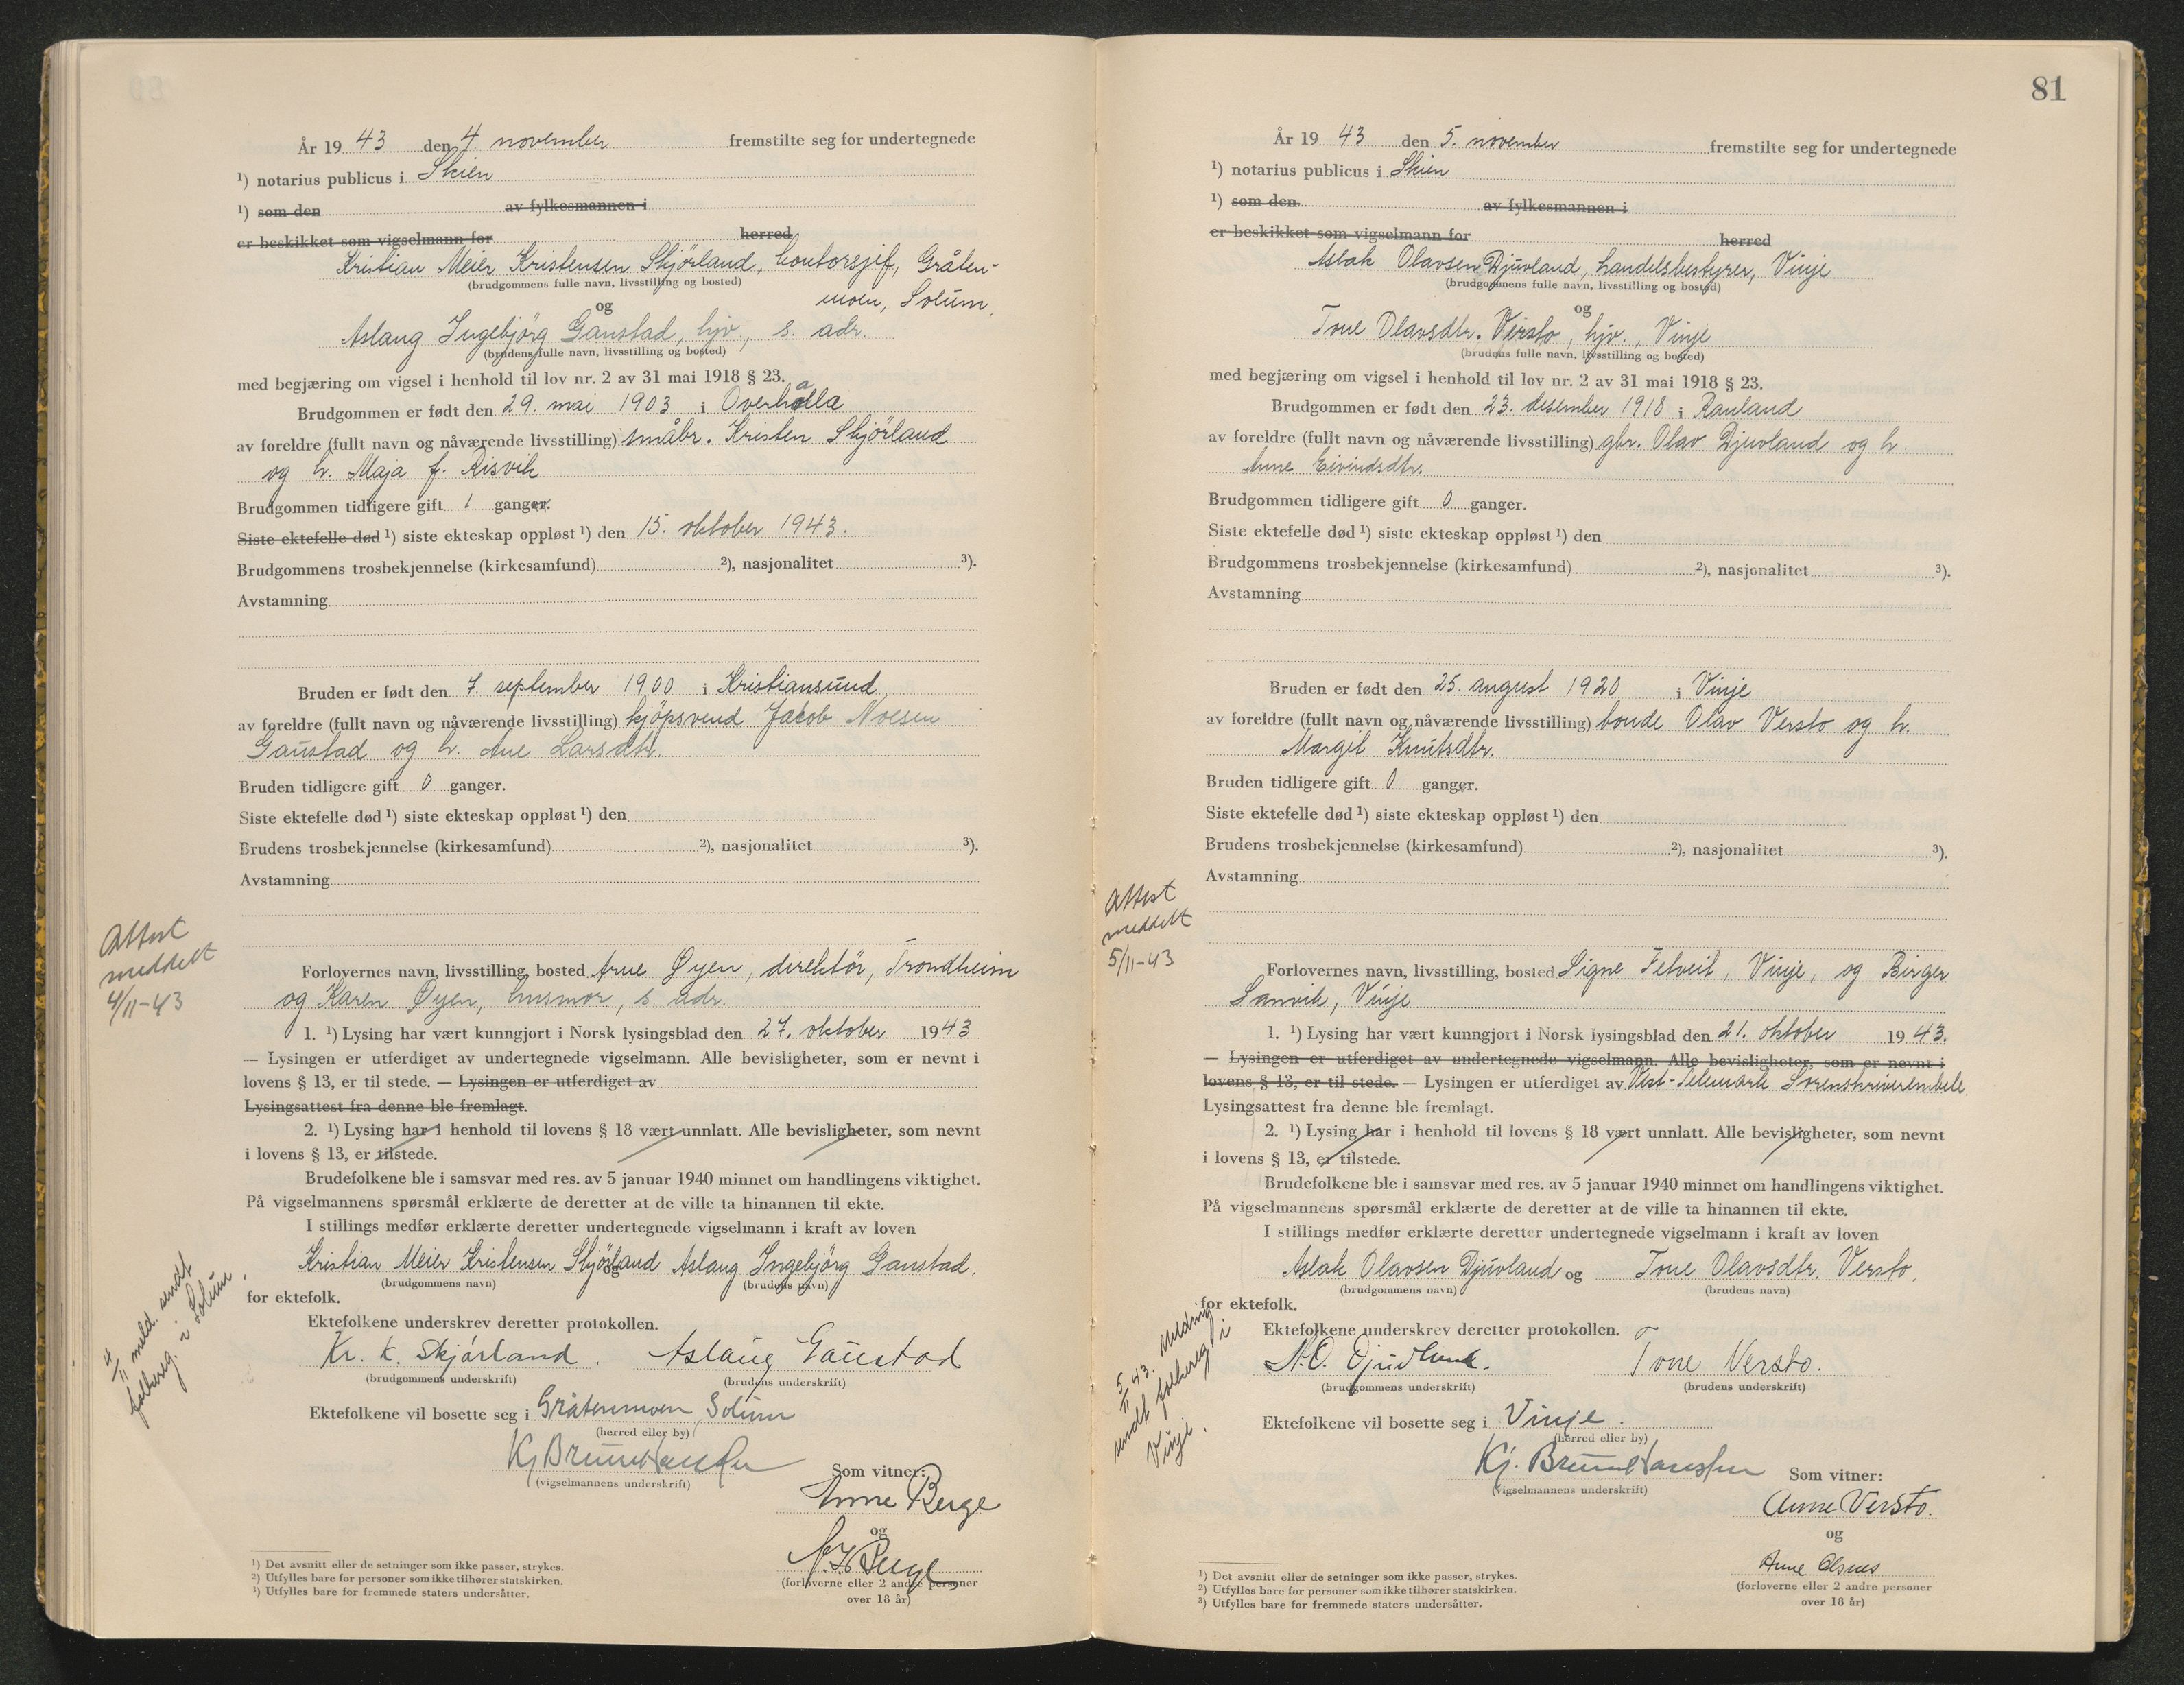 År 1943 den 4. november fremstilte seg for undertegnede
¹) notarius publicus i Skien
¹) som den av fylkesmannen i
er beskikket som vigselmann for herred
Kristian Meier Kristensen Skjörland, kontorsjef, Gråten-
(brudgommens fulle navn, livsstilling og bosted)
moen, Solum.
og
Aslaug Ingebjörg Gaustad, hjv., s. adr.
(brudens fulle navn, livsstilling og bosted)
med begjæring om vigsel i henhold til lov nr. 2 av 31 mai 1918 § 23.
Brudgommen er født den 29. mai 1903 i Overhalla
av foreldre (fullt navn og nåværende livsstilling) småbr. Kristen Skjörland
og h. Maja f. Risvik
Brudgommen tidligere gift 1 ganger.
Siste ektefelle død ¹) siste ekteskap oppløst ¹) den 15. oktober 1943.
Brudgommens trosbekjennelse (kirkesamfund) ²), nasjonalitet ³).
Avstamning
Bruden er født den 7. september 1900 i Kristiansund
av foreldre (fullt navn og nåværende livsstilling) kjöpsvend Jakob Noesen
Gaustad og h. Ane Larsdtr.
Bruden tidligere gift 0 ganger.
Siste ektefelle død ¹) siste ekteskap oppløst ¹) den
Brudens trosbekjennelse (kirkesamfund) ²), nasjonalitet ³).
Avstamning
Attest
meddelt
4/11-43
Forlovernes navn, livsstilling, bosted Arne Øyen, direktör, Trondheim
og Karen Øyen, husmor, s. adr.
1. ¹) Lysing har vært kunngjort i Norsk lysingsblad den 27. oktober 1943
— Lysingen er utferdiget av undertegnede vigselmann. Alle bevisligheter, som er nevnt i
lovens § 13, er til stede. — Lysingen er utferdiget av
Lysingsattest fra denne ble fremlagt.
2. ¹) Lysing har i henhold til lovens § 18 vært unnlatt. Alle bevisligheter, som nevnt
i lovens § 13, er tilstede.
Brudefolkene ble i samsvar med res. av 5 januar 1940 minnet om handlingens viktighet.
På vigselmannens spørsmål erklærte de deretter at de ville ta hinannen til ekte.
I stillings medfør erklærte deretter undertegnede vigselmann i kraft av loven
Kristian Meier Kristensen Skjörland og Aslaug Ingebjörg Gaustad.
(brudgommens navn) (brudens navn)
for ektefolk.
4/11 meld. sendt
folkereg. i Solum.
Ektefolkene underskrev deretter protokollen.
Kr. K. Skjørland. Aslaug Gaustad
(brudgommens underskrift) (brudens underskrift)
Ektefolkene vil bosette seg i Gråtenmoen Solum
(herred eller by)
Kj Bruun Hansen
(vigselmannens underskrift)
Som vitner:
Anne Berge
og
(forloverne eller 2 andre personer
over 18 år)
¹) Det avsnitt eller de setninger som ikke passer, strykes.
²) Utfylles bare for personer som ikke tilhører statskirken.
³) Utfylles bare for fremmede staters undersåtter.
81
År 1943 den 5. november fremstilte seg for undertegnede
¹) notarius publicus i Skien
¹) som den av fylkesmannen i
er beskikket som vigselmann for herred
Aslak Olavsen Djuvland, handelsbestyrer, Vinje
(brudgommens fulle navn, livsstilling og bosted)
og
Tone Olavsdtr. Versto, hjv., Vinje
(brudens fulle navn, livsstilling og bosted)
med begjæring om vigsel i henhold til lov nr. 2 av 31 mai 1918 § 23.
Brudgommen er født den 23. desember 1918 i Rauland
av foreldre (fullt navn og nåværende livsstilling) gbr. Olav Djuvland og h.
Anne Eivindsdtr.
Brudgommen tidligere gift 0 ganger.
Siste ektefelle død ¹) siste ekteskap oppløst ¹) den
Brudgommens trosbekjennelse (kirkesamfund) ²), nasjonalitet ³).
Avstamning
Bruden er født den 25. august 1920 i Vinje
av foreldre (fullt navn og nåværende livsstilling) bonde Olav Versto og h.
Margit Knutsdtr.
Bruden tidligere gift 0 ganger.
Siste ektefelle død ¹) siste ekteskap oppløst ¹) den
Brudens trosbekjennelse (kirkesamfund) ²), nasjonalitet ³).
Avstamning
Attest
meddelt
5/11-43
Forlovernes navn, livsstilling, bosted Signe Felveit, Vinje, og Birger
Sanvik, Vinje
1. ¹) Lysing har vært kunngjort i Norsk lysingsblad den 21. oktober 1943.
— Lysingen er utferdiget av undertegnede vigselmann. Alle bevisligheter, som er nevnt i
lovens § 13, er til stede. — Lysingen er utferdiget av Vest-Telemark Sorenskriverembete.
Lysingsattest fra denne ble fremlagt.
2. ¹) Lysing har i henhold til lovens § 18 vært unnlatt. Alle bevisligheter, som nevnt
i lovens § 13, er tilstede.
Brudefolkene ble i samsvar med res. av 5 januar 1940 minnet om handlingens viktighet.
På vigselmannens spørsmål erklærte de deretter at de ville ta hinannen til ekte.
I stillings medfør erklærte deretter undertegnede vigselmann i kraft av loven
Aslak Olavsen Djuvland og Tone Olavsdtr. Versto.
(brudgommens navn) (brudens navn)
for ektefolk.
5/11 43. Melding
sendt folkereg. i
Vinje.
Ektefolkene underskrev deretter protokollen.
A. O. Djuvland. Tone Versto.
(brudgommens underskrift) (brudens underskrift)
Ektefolkene vil bosette seg i Vinje.
(herred eller by)
Kj. Bruun Hansen
(vigselmannens underskrift)
Som vitner:
Anne Versto.
og
Anne Olsnes
(forloverne eller 2 andre personer
over 18 år)
¹) Det avsnitt eller de setninger som ikke passer, strykes.
²) Utfylles bare for personer som ikke tilhører statskirken.
³) Utfylles bare for fremmede staters undersåtter.